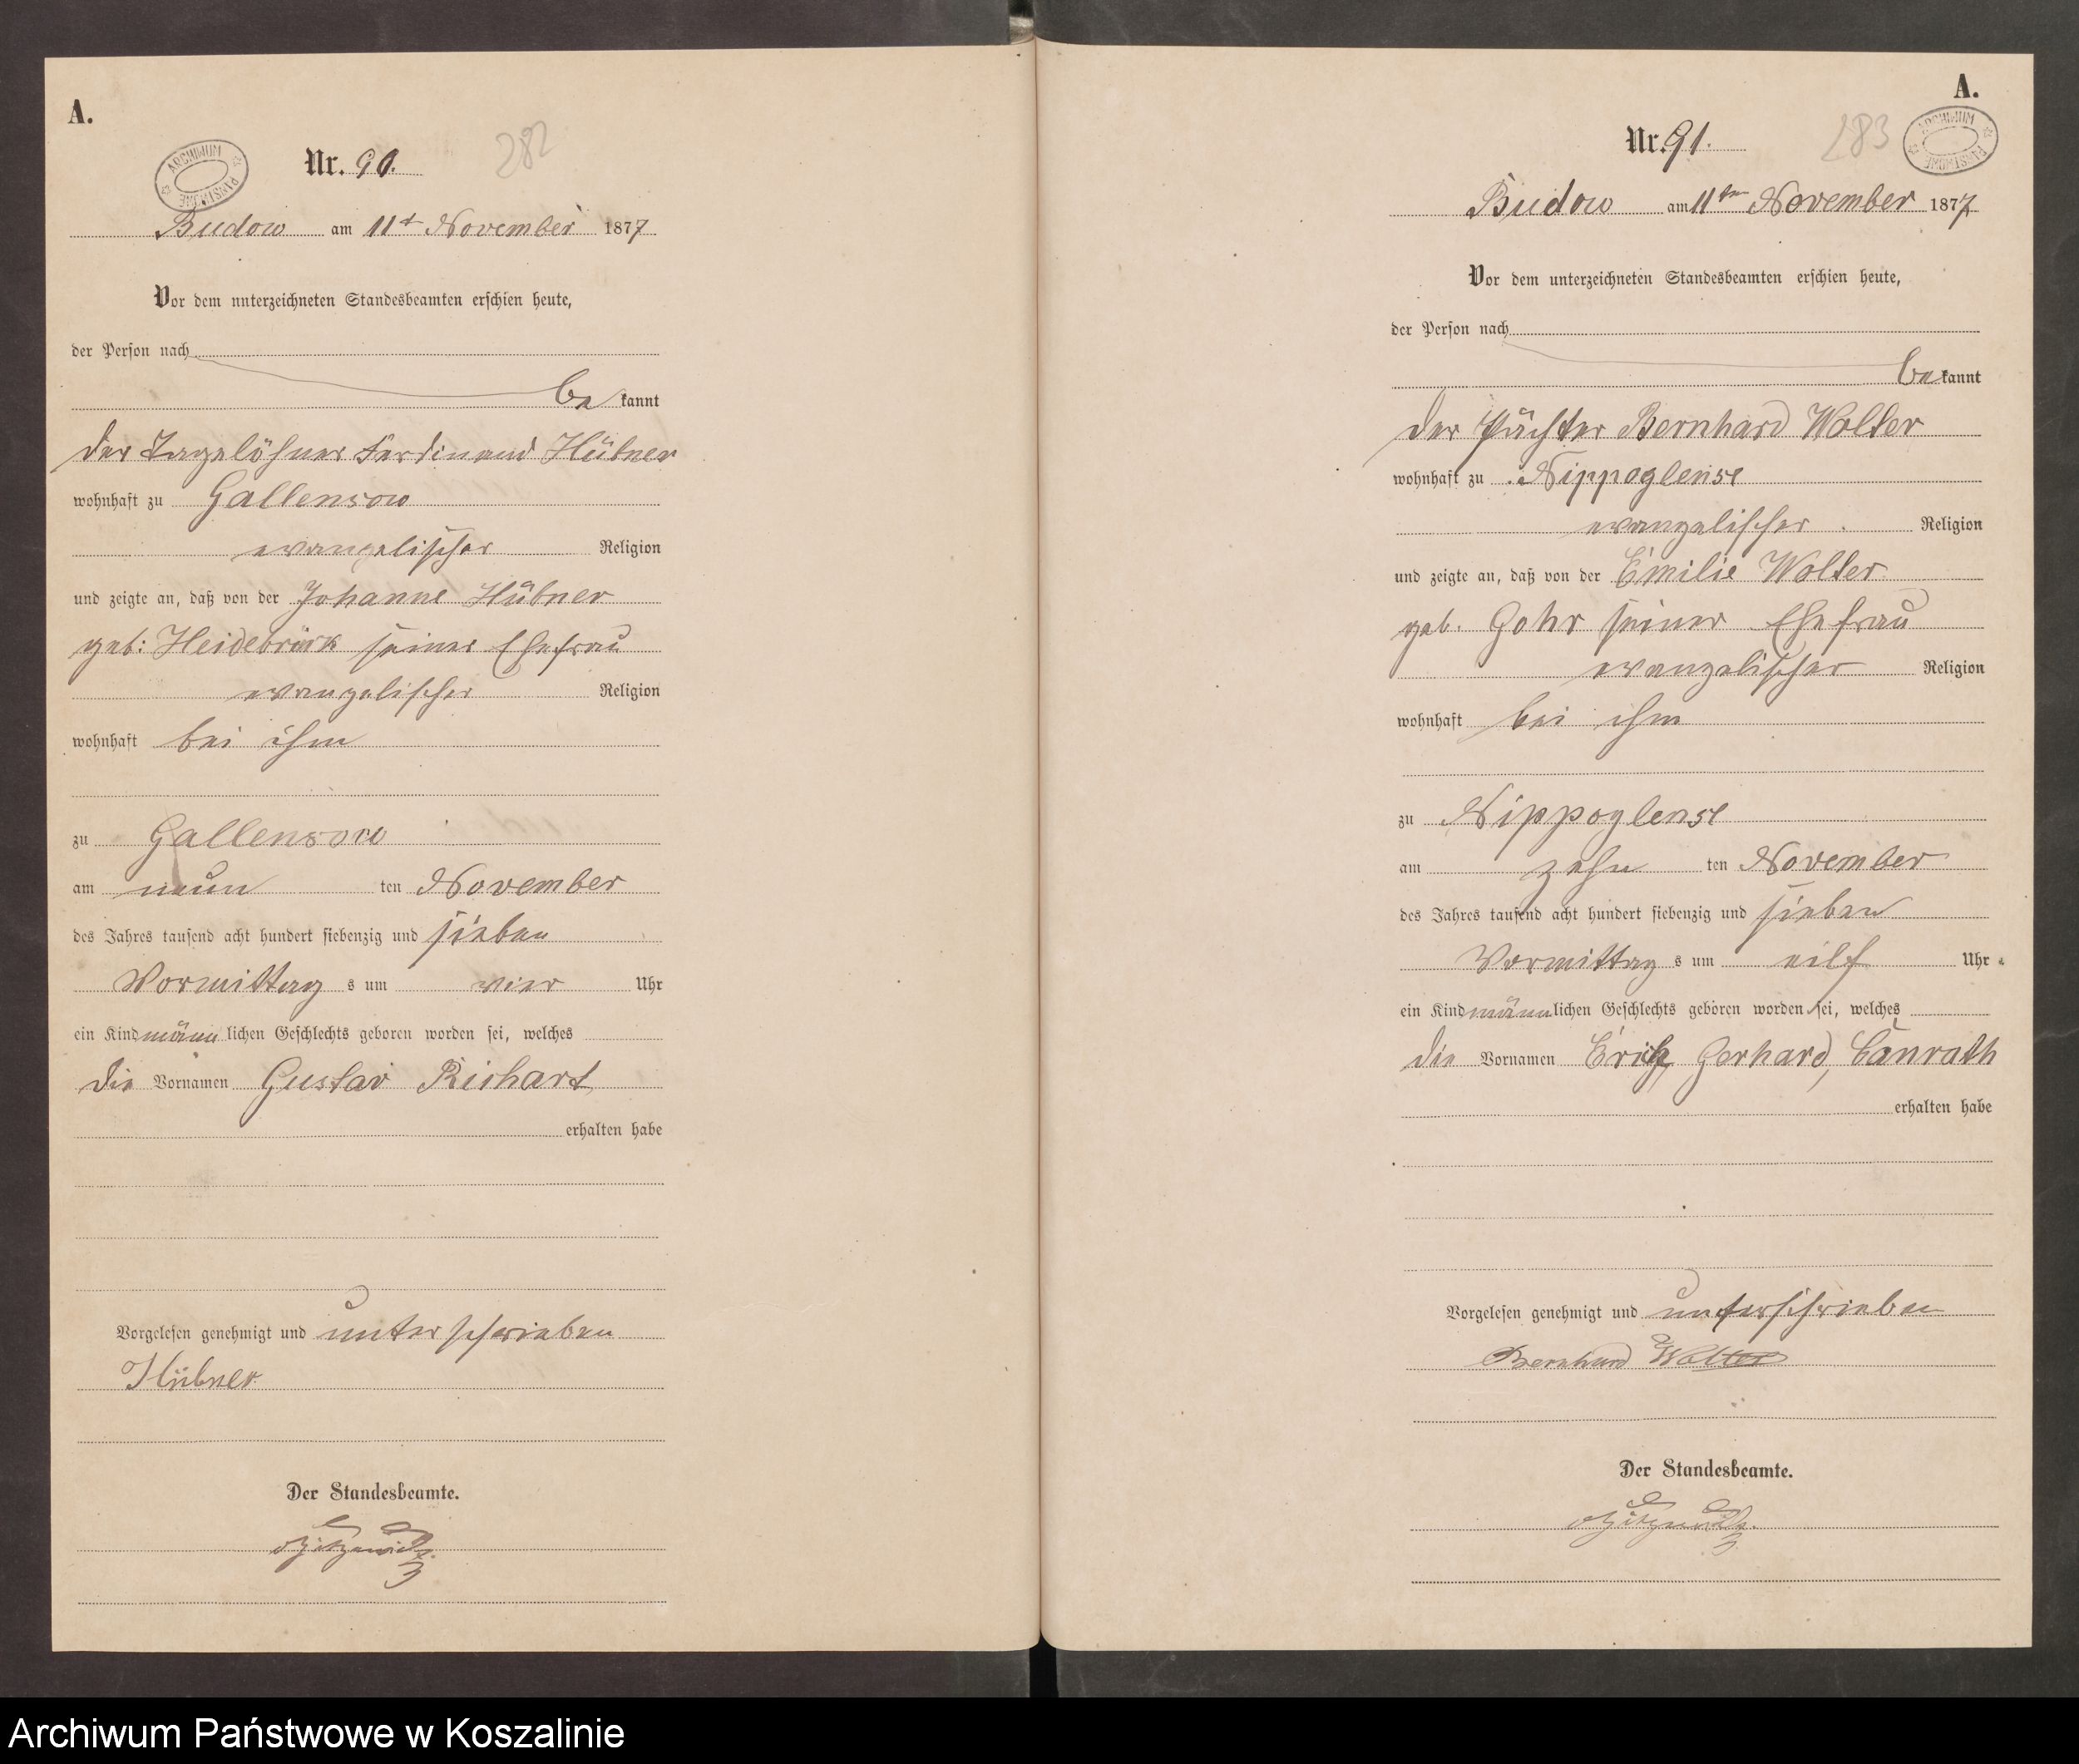 A.
ARCHIWUM PAŃSTWOWE
Nr. 90.
282
Budow am 11t November 1877
Vor dem unterzeichneten Standesbeamten erschien heute,
der Person nach
be kannt
der Tagelöhner Ferdinand Hübner
wohnhaft zu Gallensow
evangelischer Religion
und zeigte an, daß von der Johanne Hübner
geb: Heidebrink seiner Ehefrau
evangelischer Religion
wohnhaft bei ihm
zu Gallensow
am neun ten November
des Jahres tausend acht hundert siebenzig und sieben
Vormittag s um vier Uhr
ein Kind männ lichen Geschlechts geboren worden sei, welches
die Vornamen Gustav Richart
erhalten habe
Vorgelesen genehmigt und unterschrieben
Hübner
Der Standesbeamte.
A.
ARCHIWUM PAŃSTWOWE
Nr. 91.
283
Budow am 11ten November 1877
Vor dem unterzeichneten Standesbeamten erschien heute,
der Person nach
be kannt
der Pächter Bernhard Wolter
wohnhaft zu Nippoglense
evangelischer Religion
und zeigte an, daß von der Emilie Wolter
geb. Gohr seiner Ehefrau
evangelischer Religion
wohnhaft bei ihm
zu Nippoglense
am zehn ten November
des Jahres tausend acht hundert siebenzig und sieben
Vormittag s um eilf Uhr
ein Kind männ lichen Geschlechts geboren worden sei, welches
die Vornamen Erich, Gerhard, Canrath
erhalten habe
Vorgelesen genehmigt und unterschrieben
Bernhard Wolter
Der Standesbeamte.
Archiwum Państwowe w Koszalinie